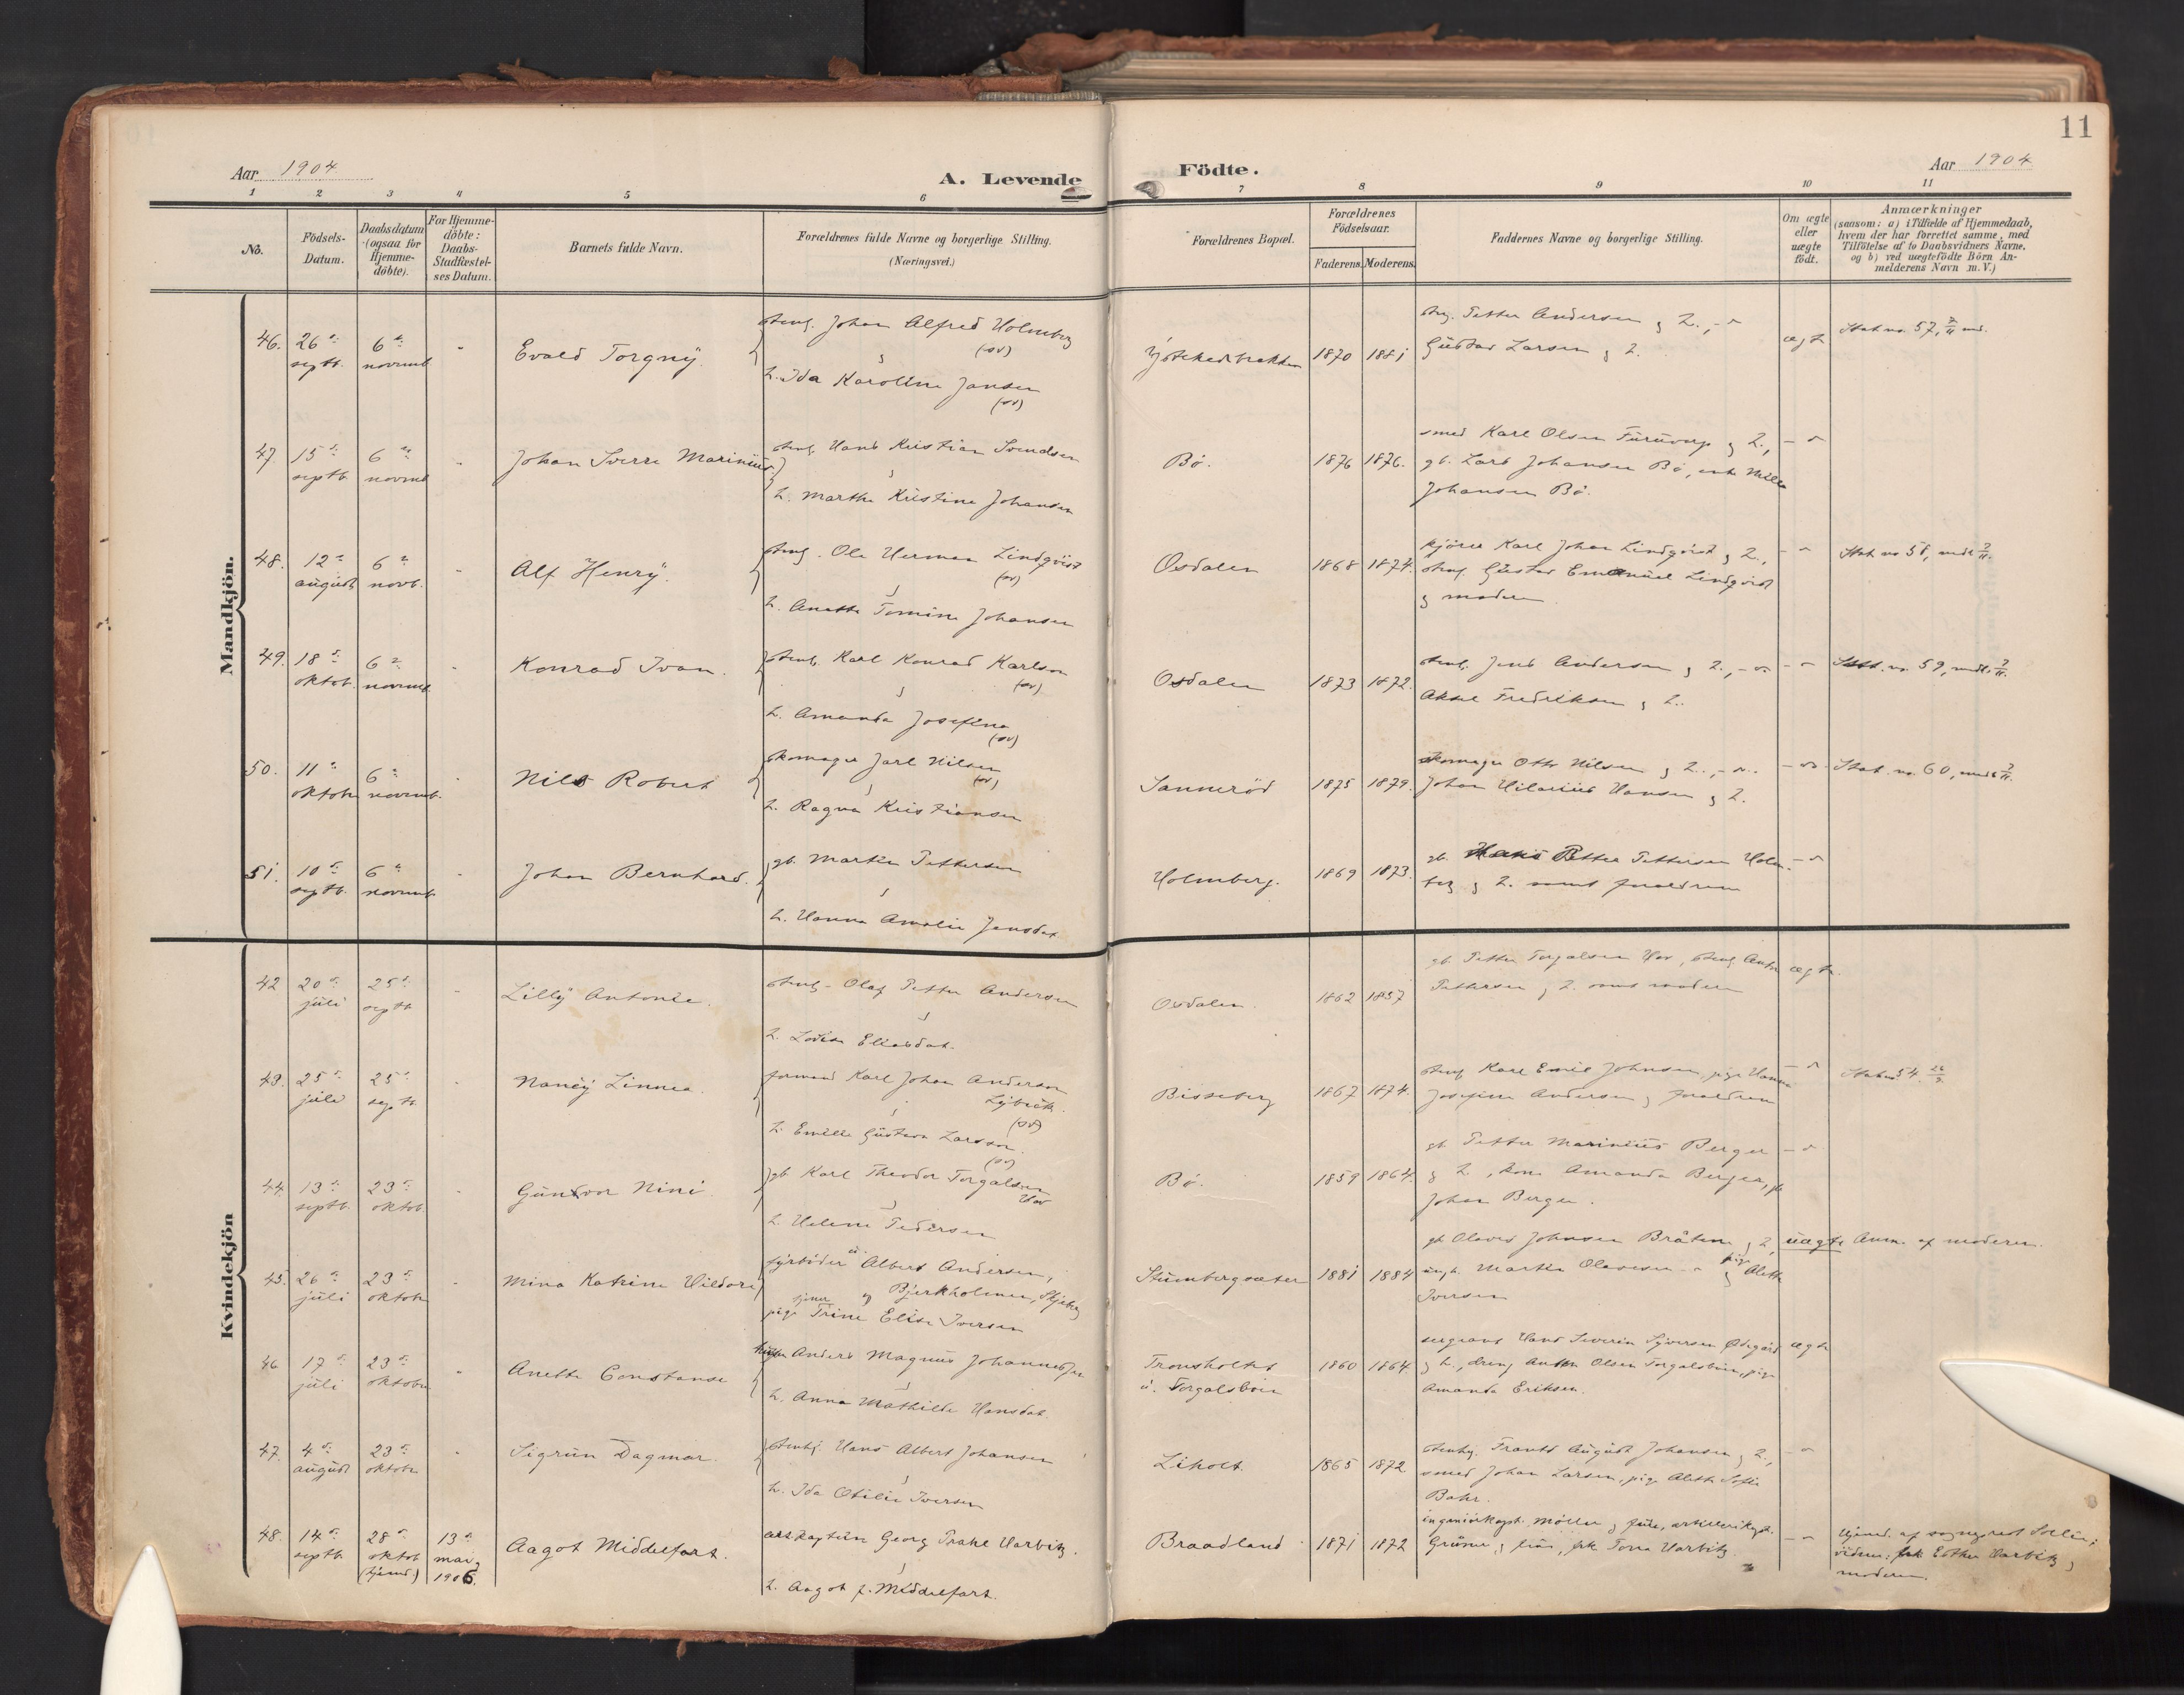 11
Aar 1904
A. Levende
Födte.
Aar 1904
1 2 3 4 5 6 7 8 9 10 11
No.
Födsels-Datum.
Daabsdatum (ogsaa for Hjemme-döbte).
For Hjemme-döbte: Daabs-Stadfæstel-ses Datum.
Barnets fulde Navn.
Forældrenes fulde Navne og borgerlige Stilling.
(Næringsvei.)
Forældrenes Bopæl.
Forældrenes Födselsaar.
Faderens.
Moderens.
Faddernes Navne og borgerlige Stilling.
Om ægte eller uægte födt.
Anmærkninger
(saasom: a) i Tilfælde af Hjemmedaab,
hvem der har forrettet samme, med
Tilföielse af to Daabsvidners Navne,
og b) ved uægtefödte Börn An-
melderens Navn m. V.)
Mandkjön.
46. 26 septb. 6 novemb. - Evald Torgny. stenh. Johan Alfred Holmberg (sv)
& h. Ida Karolina Jansen (sv)
1870 1881 Petter Andersen & h., Gustav Larsen & h. ægte Stat. no. 57,
47. 15 septb. 6 novemb. - Johan Sverre Marinius stenh. Hans Kristian Svendsen
& h. Marthe Kristine Johansen
Bö. 1876 1876. smed Karl Olsen Furuvarp & h.,
gb. Lars Johansen Bö, enke Mille
Johansen Bö.
48. 12 august 6 novb. - Alf Henry. stenh. Ole Herman Lindqvist (sv)
& h. Anette Tomine Johansen
Osdalen 1868 1874. kjörer Karl Johan Lindqvist & h.,
stenh. Gustav Emanuel Lindqvist
& moderen Stat. no 58,
49. 18 oktob. 6 novemb. - Konrad Ivan. stenh. Karl Konrad Karlson (sv)
& h. Amanda Josefina (sv)
Osdalen 1873 1872. stenh. Jens Andersen & h.,
Aksel Fredriksen & h. Stat. no. 59,
50. 11 oktobr 6 novemb. - Nils Robert skomager Jarl Nilsen (sv)
& h. Ragna Kristiansen
Sanneröd 1875 1879. skomager Otto Nilsen & h.,
Johan Hilarius Hansen & h. Stat. no. 60,
51. 10 septb. 6 novemb. - Johan Bernhard. gb. Martin Pettersen
& h. Hanna Amalie Jensdat.
Holmberg. 1869 1873. gb. Hans Petter Pettersen Holm-
berg & h. samt forældrene
Kvindekjön
42 20 juli 25 septb. - Lilly Antonie. stenh. Olaf Petter Andersen
& h. Lovise Eliasdat.
Osdalen. 1862 1857 gb. Petter Torgalsen Hov, stenh. Anton
Pettersen & h. samt moderen ægte.
43. 25 juli 25 septb. - Nancy Linnea. formand Karl Johan Anderson
Lybeck. (sv)
& h. Emilia Gustava Larsson (sv)
Bisseberg 1867 1874. stenh. Karl Emil Johnsen, pige Hanna
Josefine Andersen & forældrene Stat. no 54.
44. 13 septb. 23 oktob. - Gunvor Nini gb. Karl Theodor Torgalsen
Hov
& h. Helene Pedersen
Bö. 1859 1864. gb. Petter Marinius Berger
& h., kone Amanda Berger, gb.
Johan Berger.
45. 26 juli 23 oktobr - Mina Katrine Vildore fyrböder Albert Andersen,
Bjerkholmen, Skjeberg
og pige Trine Elise Iversen
Stumbergsæter 1881 1884 gb Olaves Johnsen Bråten & h,
ungk. Martin Olavesen & pige Alette
Iversen uægte Anm. af moderen.
46 17 juli 23 oktober - Anette Constanse Anders Magnus Johannessen
& h. Anna Mathilde Hansdat.
Tronsholtet
u. Torgalsböen 1860 1864. sergeant Hans Severin Syversen Ödegård
& h., dreng Anton Olsen Torgalsböen, pige
Amanda Eriksen. ægte
47 4 august 23 oktobr - Sigrun Dagmar. stenh. Hans Albert Johansen
& h. Ida Otilie Iversen
Liholt. 1865 1872 stenhg. Frants August Johansen & h.,
smed Johan Larsen, pige Aleth Sofie
Bahr.
48. 14 septb. 28 oktob (hjemd.) 13 mai 1906. Aagot Middelfart. art.kaptein Georg Prahl Harbitz.
& h. Aagot f. Middelfart.
Braadland 1871 1872 ingeniörkapt. Möller & frue, artillerikapt.
Grüner & frue, frk Tora Harbitz
Hjemd. af sogneprest
vidner: frk Esther Harbitz &
moderen.